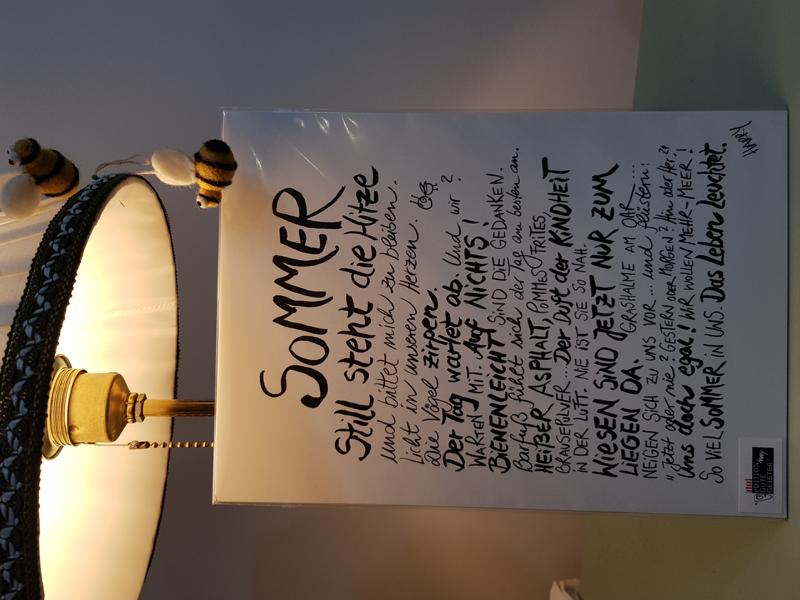 SOMMER
Still steht die Hitze
und bittet mich zu bleiben.
Licht in unseren Herzen.
Die Vögel zirpen.
Der Tag wartet ab. Und wir?
WARTEN MIT. Auf NICHTS!
BIENENLEICHT SIND DIE GEDANKEN.
Barfuß fühlt sich der Tag am besten an.
HEIẞER ASPHALT, POMMES FRITES,
BRAUSEPULVER... Der Duft der KINDHEIT
IN DER LUFT. NIE IST SIE SO NAH.
WIESEN SIND JETZT NUR ZUM
LIEGEN DA. GRASHALME AM OHR...
NEIGEN SICH ZU UNS VOR... und flüstern:
"Jetzt oder nie? GESTERN ODER MORGEN? Hin oder Her?"
Uns doch egal! WIR WOLLEN MEHR-MEER!
SO VIEL SOMMER IN UNS. Das Leben Leuchtet.
HARRY
EDITION
GUTE
GEISTER